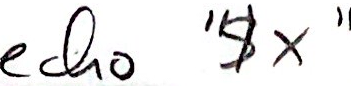 echo "$x"